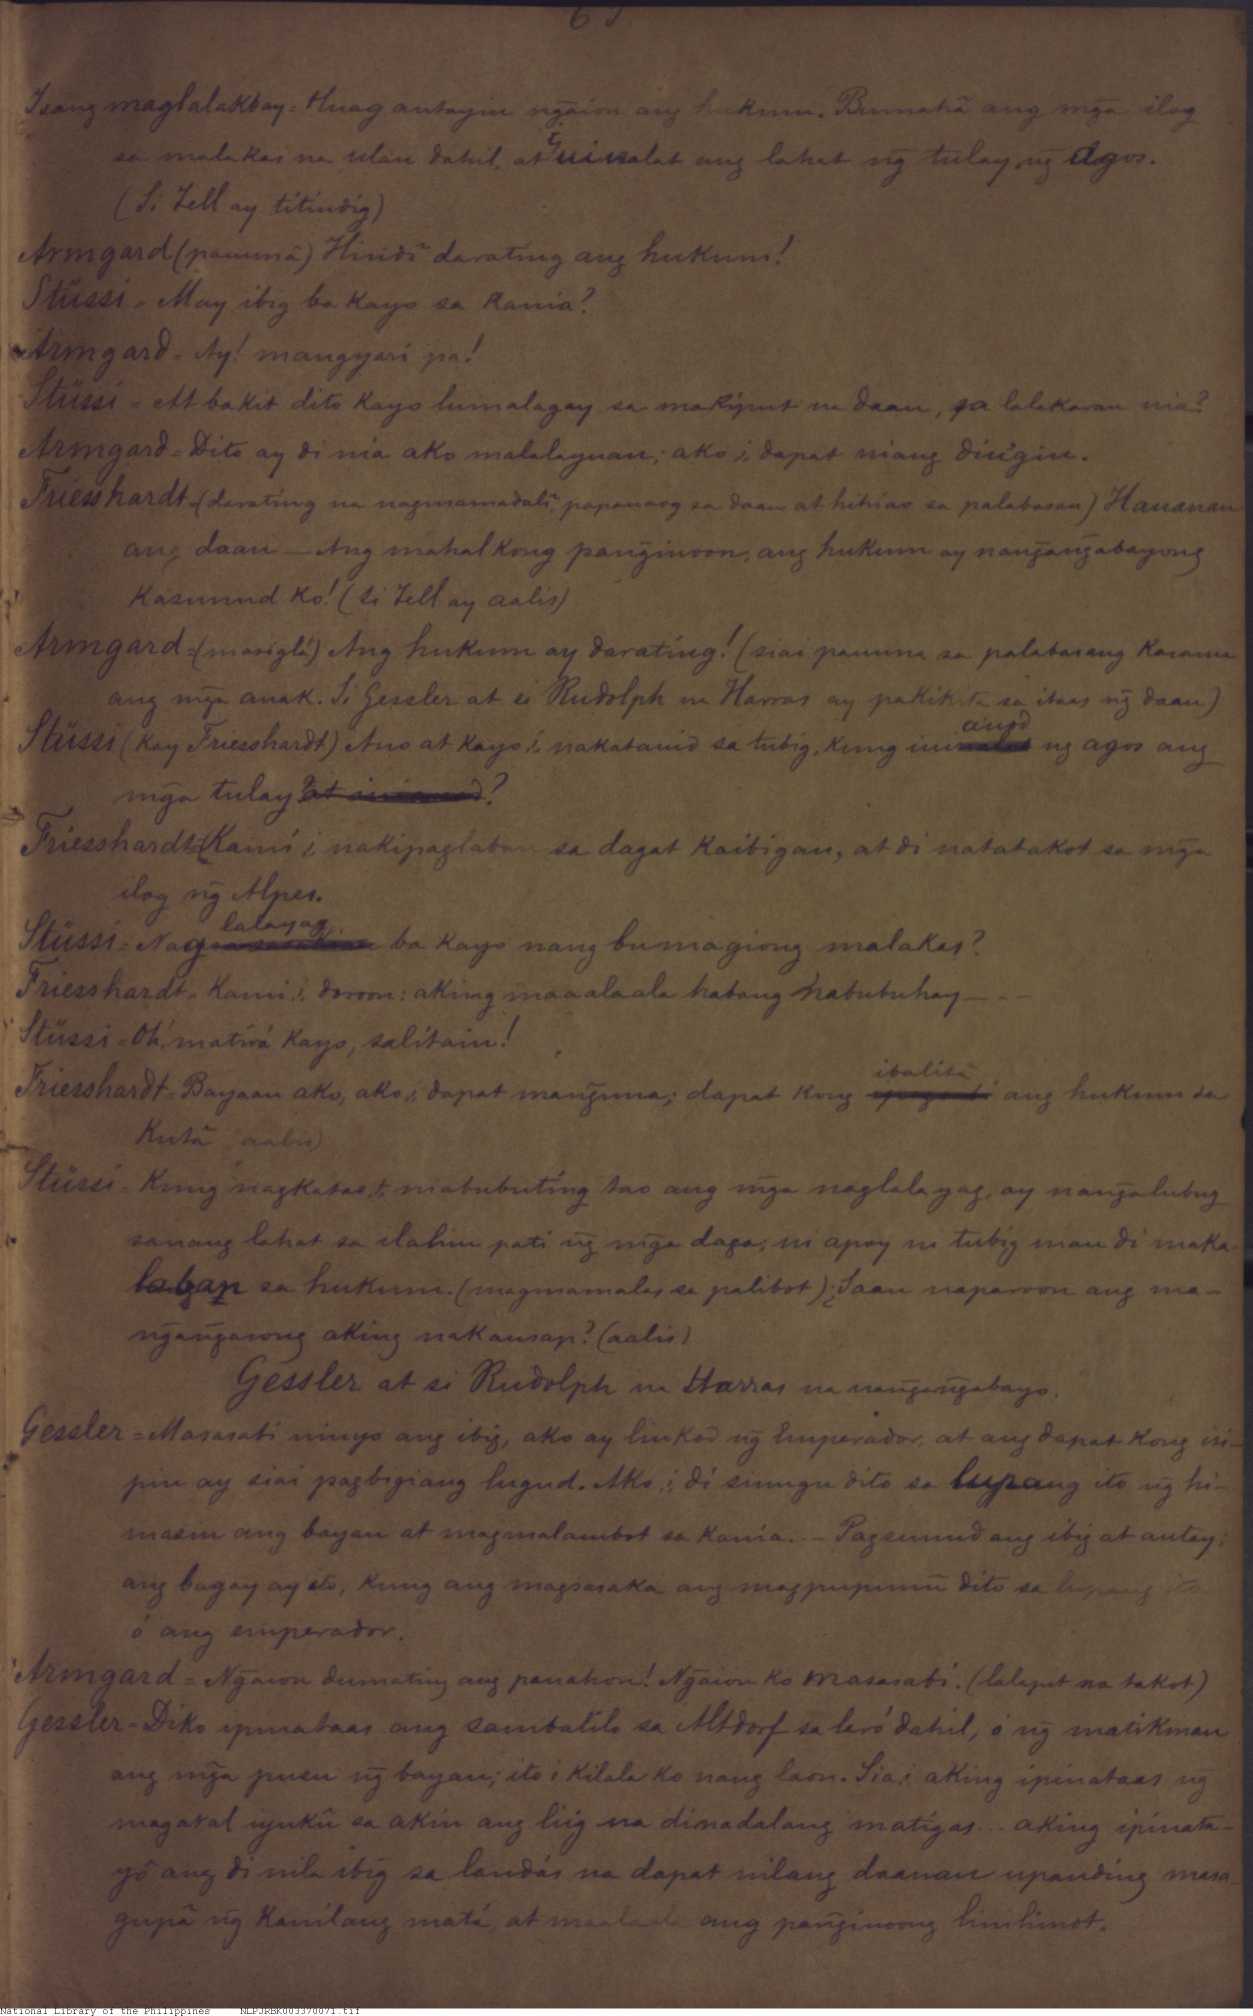 Isang maglalakbay = Huag antayin ñgaion ang hukum. Bumahâ ang mg̃a ilog
sa malakas na ulan dahil, at ang lahat ng̃ tulay, ng̃ agos.
(Si Tell ay titindig)
Armgard (pauunâ) Hindî darating ang hukum!
Stüssi = May ibig ba kayo sa kania?
Armgard = Ay! mangyari pa!
Stüssi = At bakit dito kayo lumalagay sa makiput na daan, sa lalakaran nia?
Armgard = Dito ay di nia ako malalayuan; ako,i, dapat niang diñgin.
Friesshardt = (darating na nagmamadalî papanaog sa daan at hihiao sa palabasan) Hauanan
ang daan — Ang mahal kong pang̃inoon, ang hukum ay nang̃ang̃abayong
kasunud ko! (Si Tell ay aalis)
Armgard = (masiglá) Ang hukum ay darating! (siai pauuna sa palabasang kasama
ang mg̃a anak. Si Gessler at si Rudolph na Harras ay pakikita sa itaas ng̃ daan)
Stüssi (kay Friesshardt) Ano at kayo,i, nakatauid sa tubig, kung inanod ng agos ang
mg̃a tulay?
Friesshardt = Kami,i, nakipaglaban sa dagat kaibigan, at di natatakot sa mg̃a
ilog ng̃ Alpes.
Stüssi = Naglalayag ba kayo nang bumagiong malakas?
Friesshardt = Kami,i, doroon: aking maaalaala habang nabubuhay - - -
Stüssi = Oh, matirá kayo, salitain!
Friesshardt = Bayaan ako, ako,i, dapat mang̃una; dapat kong ibalitâ ang hukum sa
kutâ (aalis)
Stüssi = Kung nagkataó,t, mabubuting tao ang mg̃a naglalayag, ay nang̃alubug
sanang lahat sa ilalim pati ng̃ mg̃a daga; ni apoy ni tubig man di maka-
laban sa hukum. (magmamalas sa palibot) ¿Saan naparoon ang ma-
ng̃ang̃asong aking nakausap? (aalis)
Gessler at si Rudolph na Harras na nang̃ang̃abayo.
Gessler = Masasabi ninyo ang ibig, ako ay linkod ng̃ Emperador, at ang dapat kong isi-
pin ay siai pagbigiang lugud. Ako,i, di sinugu dito sa lupang ito ng̃ hi-
masin ang bayan at magmalambot sa kania. — Pagsunud ang ibig at antay;
ang bagay ay ito, kung ang magsasaka ang magpupunũ dito sa lupang ito
ó ang emperador.
Armgard = Ng̃aion dumating ang panahon! Ng̃aion ko masasabi. (lalapit na takot)
Gessler = Diko ipinataas ang sambalilo sa Altdorf sa laró dahil, ó ng̃ matikman
ang mg̃a pusu ng̃ bayan; ito,i kilala ko nang laon. Sia,i aking ipinataas ng̃
magaral iyukû sa akin ang liig na dinadalang matigas... aking ipinata-
yô ang di nila ibig sa landás na dapat nilang daanan upanding masa-
gupâ ng̃ kanilang matá, at maalaala ang pang̃inoong linilimot.
National Library of the Philippines NLPJRBK003370071.tif